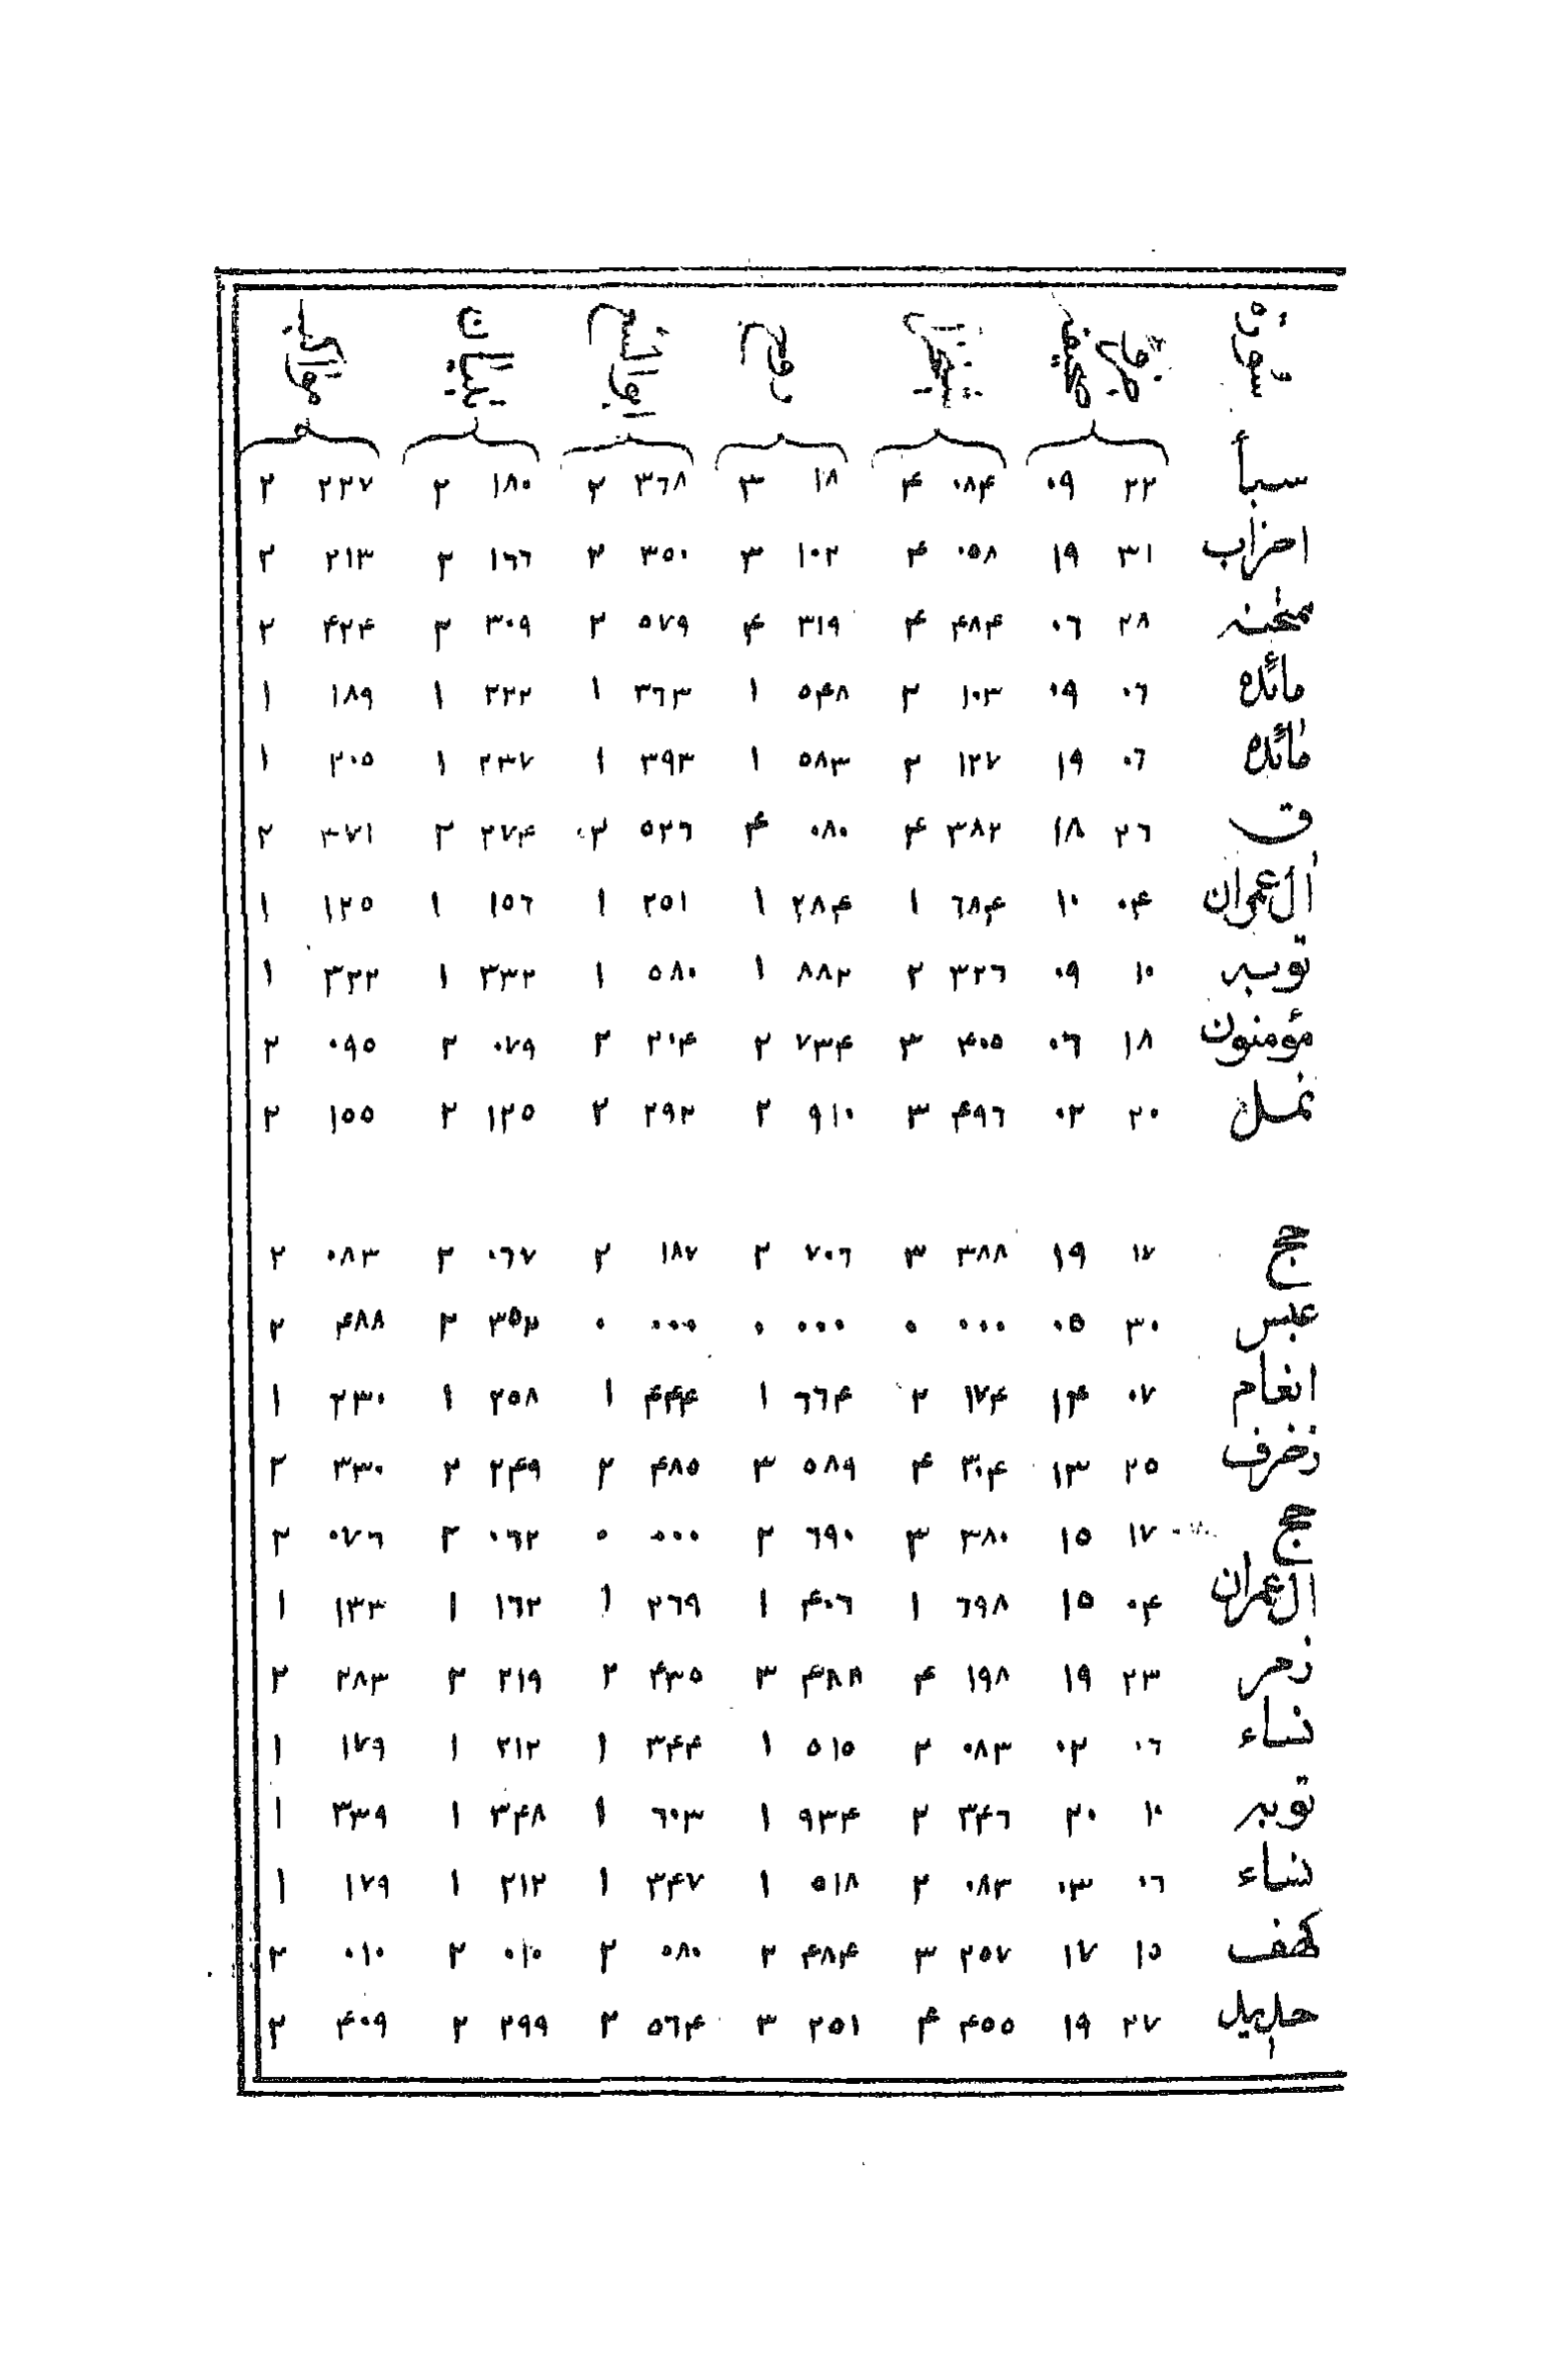 سوره
سبأ ۲۲ ۰۹ ۰۸۴ ۴ ۱۸ ۳ ۳٦۸ ۲ ۱۸۰ ۲ ۲۲۷ ۲
احزاب ۳۱ ۱۹ ۰۵۸ ۴ ۱۰۲ ۳ ۳۵۰ ۲ ۱٦٦ ۲ ۲۱۳ ۲
ممتحنه ۲۸ ۰٦ ۴۸۴ ۴ ۳۱۹ ۴ ۵۷۹ ۲ ۳۰۹ ۲ ۴۲۴ ۲
مائده ۰٦ ۰۹ ۱۰۳ ۲ ۵۴۸ ۱ ۳٦۳ ۱ ۲۲۲ ۱ ۱۸۹ ۱
مائده ۰٦ ۱۹ ۱۲۷ ۲ ۵۸۳ ۱ ۳۹۳ ۱ ۲۳۷ ۱ ۲۰۵ ۱
ق ۲٦ ۱۸ ۳۸۲ ۴ ۰۸۰ ۴ ۵۲٦ ۲ ۲۷۴ ۲ ۳۷۱ ۲
آل عمران ۰۴ ۱۰ ٦۸۴ ۱ ۲۸۴ ۱ ۲۵۱ ۱ ۱۵٦ ۱ ۱۲۵ ۱
توبه ۱۰ ۰۹ ۳۲٦ ۲ ۸۸۲ ۱ ۵۸۰ ۱ ۳۳۲ ۱ ۳۲۲ ۱
مؤمنون ۱۸ ۰٦ ۴۰۵ ۳ ۷۳۴ ۲ ۲۰۴ ۲ ۰۷۹ ۲ ۰۹۵ ۲
نمل ۲۰ ۰۲ ۴۹٦ ۳ ۹۱۰ ۲ ۲۹۲ ۲ ۱۲۵ ۲ ۱۵۵ ۲
حج ۱۷ ۱۹ ۳۸۸ ۳ ۷۰٦ ۲ ۱۸۷ ۲ ۰٦۷ ۲ ۰۸۳ ۲
عبس ۳۰ ۰۵ ۰۰۰ ۰ ۰۰۰ ۰ ۰۰۰ ۰ ۳۵۲ ۲ ۴۸۸ ۲
انعام ۰۷ ۱۴ ۱۷۴ ۲ ٦٦۴ ۱ ۴۴۴ ۱ ۲۵۸ ۱ ۲۳۰ ۱
زخرف ۲۵ ۱۳ ۳۰۴ ۴ ۵۸۹ ۳ ۴۸۵ ۲ ۲۴۹ ۲ ۳۳۰ ۲
حج ۱۷ ۱۵ ۳۸۰ ۳ ٦۹۰ ۲ ۰۰۰ ۰ ۰٦۲ ۲ ۰۷٦ ۲
آل عمران ۰۴ ۱۵ ٦۹۸ ۱ ۴۰٦ ۱ ۲٦۹ ۱ ۱٦۲ ۱ ۱۳۳ ۱
زمر ۲۳ ۱۹ ۱۹۸ ۴ ۴۸۸ ۳ ۴۳۵ ۲ ۲۱۹ ۲ ۲۸۳ ۲
نساء ۰٦ ۰۲ ۰۸۳ ۲ ۵۱۵ ۱ ۳۴۴ ۱ ۲۱۲ ۱ ۱۷۹ ۱
توبه ۱۰ ۲۰ ۳۴٦ ۲ ۹۳۴ ۱ ٦۰۳ ۱ ۳۴۸ ۱ ۳۳۹ ۱
نساء ۰٦ ۰۳ ۰۸۳ ۲ ۵۱۸ ۱ ۳۴۷ ۱ ۲۱۲ ۱ ۱۷۹ ۱
کهف ۱۵ ۱۷ ۲۵۷ ۳ ۴۸۴ ۲ ۰۸۰ ۲ ۰۱۰ ۲ ۰۱۰ ۲
حدید ۲۷ ۱۹ ۴۵۵ ۴ ۲۵۱ ۳ ۵٦۴ ۲ ۲۹۹ ۲ ۴۰۹ ۲